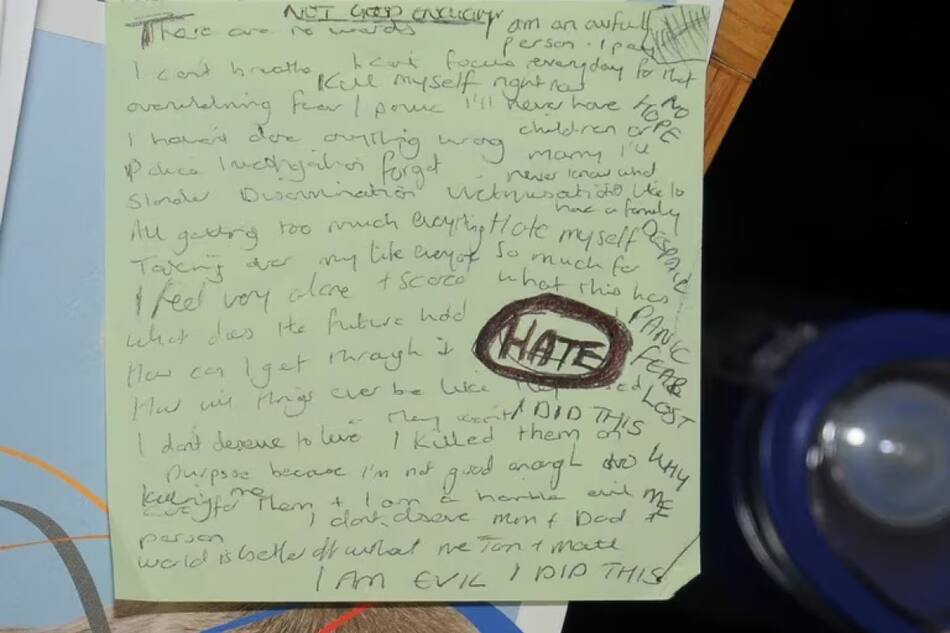 NOT GOOD ENOUGH
There are no words
I am an awful
person. I pay
everyday for that
I can't breathe I can't focus
Kill myself right now
overwhelming fear / panic
I'll never have
NO
HOPE
children or
I haven't done anything wrong
marry I'll
Police Investigation forget
never know what
Slander Discrimination Victimisation
like to
have a family
All getting too much everything
Hate myself
DESPAIR
Taking over my life everyone
so much for
I feel very alone + scared
what this has
PANIC
What does the future hold
HATE
FEAR
How can I get through it
LOST
How will things ever be like they
they won't
I DID THIS
I don't deserve to live
I killed them on
WHY
purpose because I'm not good enough to
ME
care for them + I am a horrible evil
killing me
person
I don't deserve Mum + Dad +
world is better off without me
I AM EVIL I DID THIS